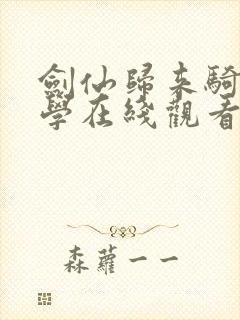 劍仙歸來騎
學在綫觀看
森蘿一一